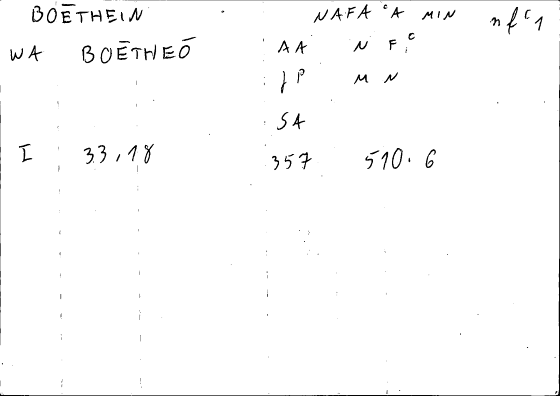 BOĒTHEIN NAFAʿA MIN nfʿ1
WA BOĒTHEŌ AA N Fʿ
JP M N
SA
I 33,18 357 510.6